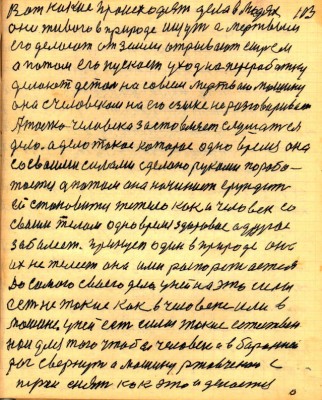 Вот какие происходят дела в людях 103
они живого в природе ищут а мертвым
его делают с земли отрывает сырьем
а потом его пускает у ход на переработку
делают детом на совсем мертвую машину
она с человеком на его языке не разговаривает
А только человека заставляет слушатся
дело. а дело такое которое одно время она
со своими силами сделано руками порабо-
тается а потом она начинает ерундить
ей становится тяжело как и человек со
своим телом одно время здоровое а другое
заболеет. принцеп один в природе она
их не жалеет она ими распоряжается
До самого своего дела у ней на это силы
есть не такие как в человеке или в
машине у ней есть силы такие естествен
ной для того чтобы человека в бараний
рог свернуть а машину ржавчиной с
пути снять как это и делается